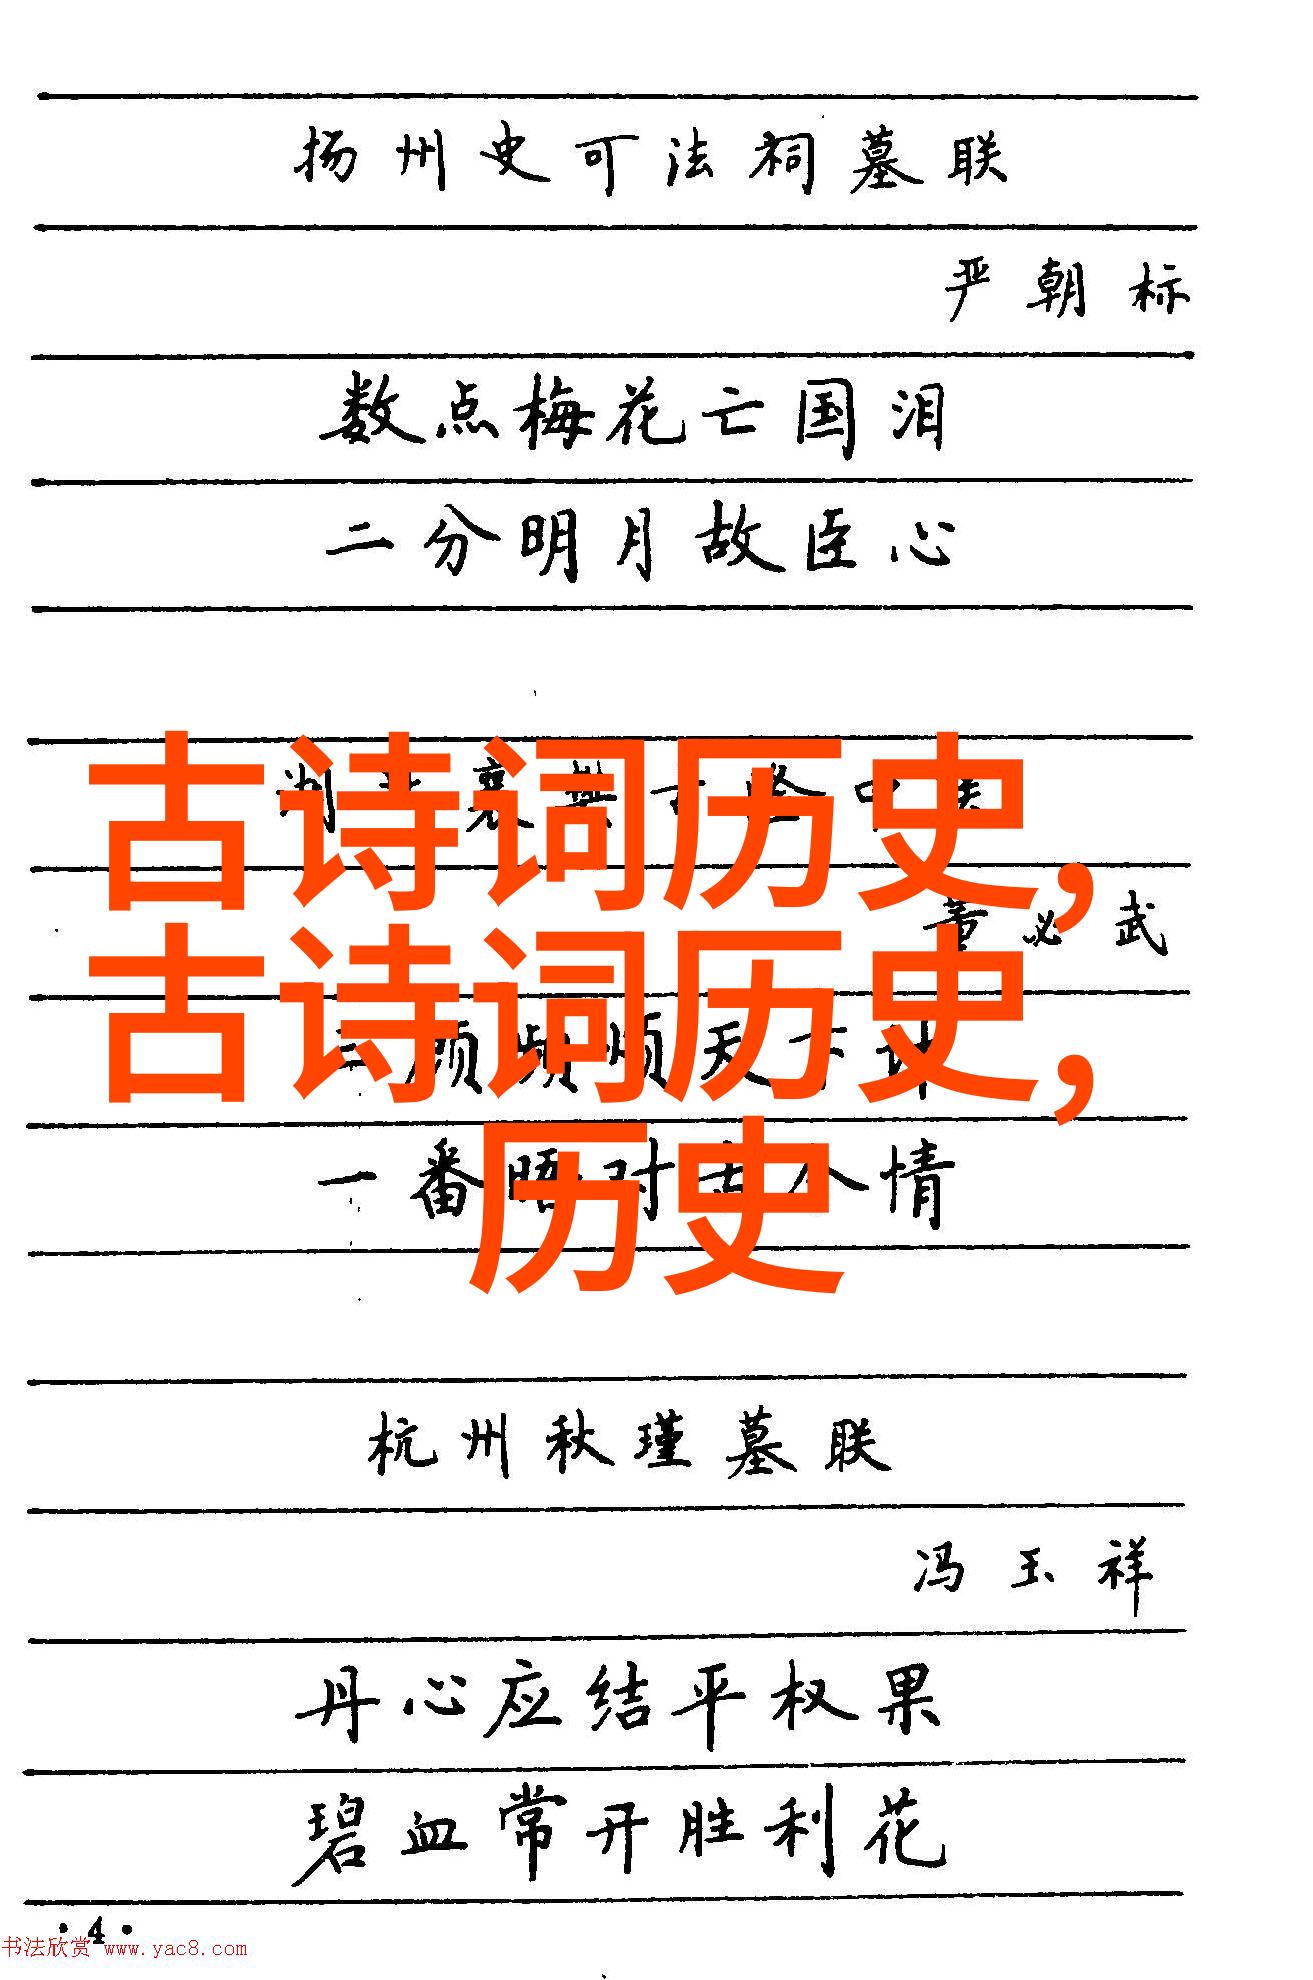 扬州史可法祠墓联
严朝标
数点梅花亡国泪
二分明月故臣心
古诗词历史,
董必武
古诗词历史,
三顾频烦天下计
历史
一番晤对古今情
杭州秋瑾墓联
冯玉祥
丹心应结平权果
碧血常开胜利花
·4·
书法欣赏 www.yac8.com